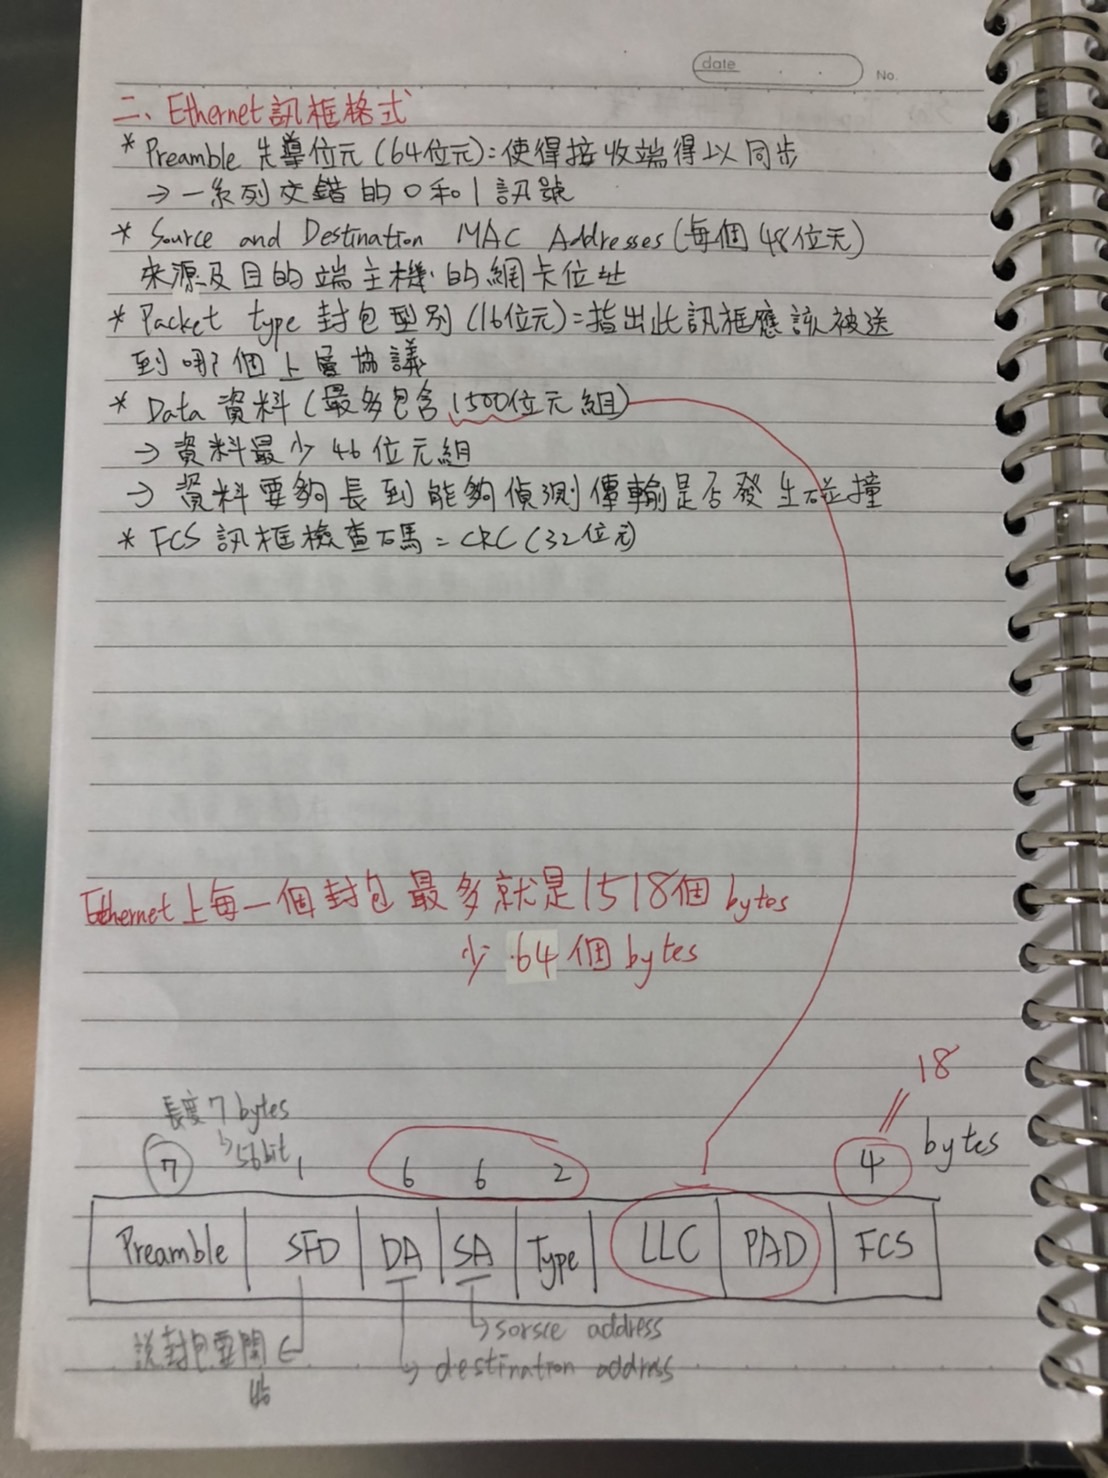 date
No.
二、Ethernet訊框格式
* Preamble 先導位元(64位元):使得接收端得以同步
→一系列交錯的0和1訊號
* Source and Destination MAC Addresses(每個48位元)
來源及目的端主機的網卡位址
* Packet type 封包型別(16位元)=指出此訊框應該被送
到哪個上層協議
* Data 資料(最多包含1500位元組)
→資料最少46位元組
→資料要夠長到能夠偵測傳輸是否發生碰撞
* FCS 訊框檢查碼=CRC(32位元)
Ethernet上每一個封包最多就是1518個bytes
少64個bytes
18
長度7 bytes
↳56bit
7 1 6 6 2 4 bytes
Preamble SFD DA SA Type LLC PAD FCS
↳sorsce address
說封包要開←
始
↳destination address